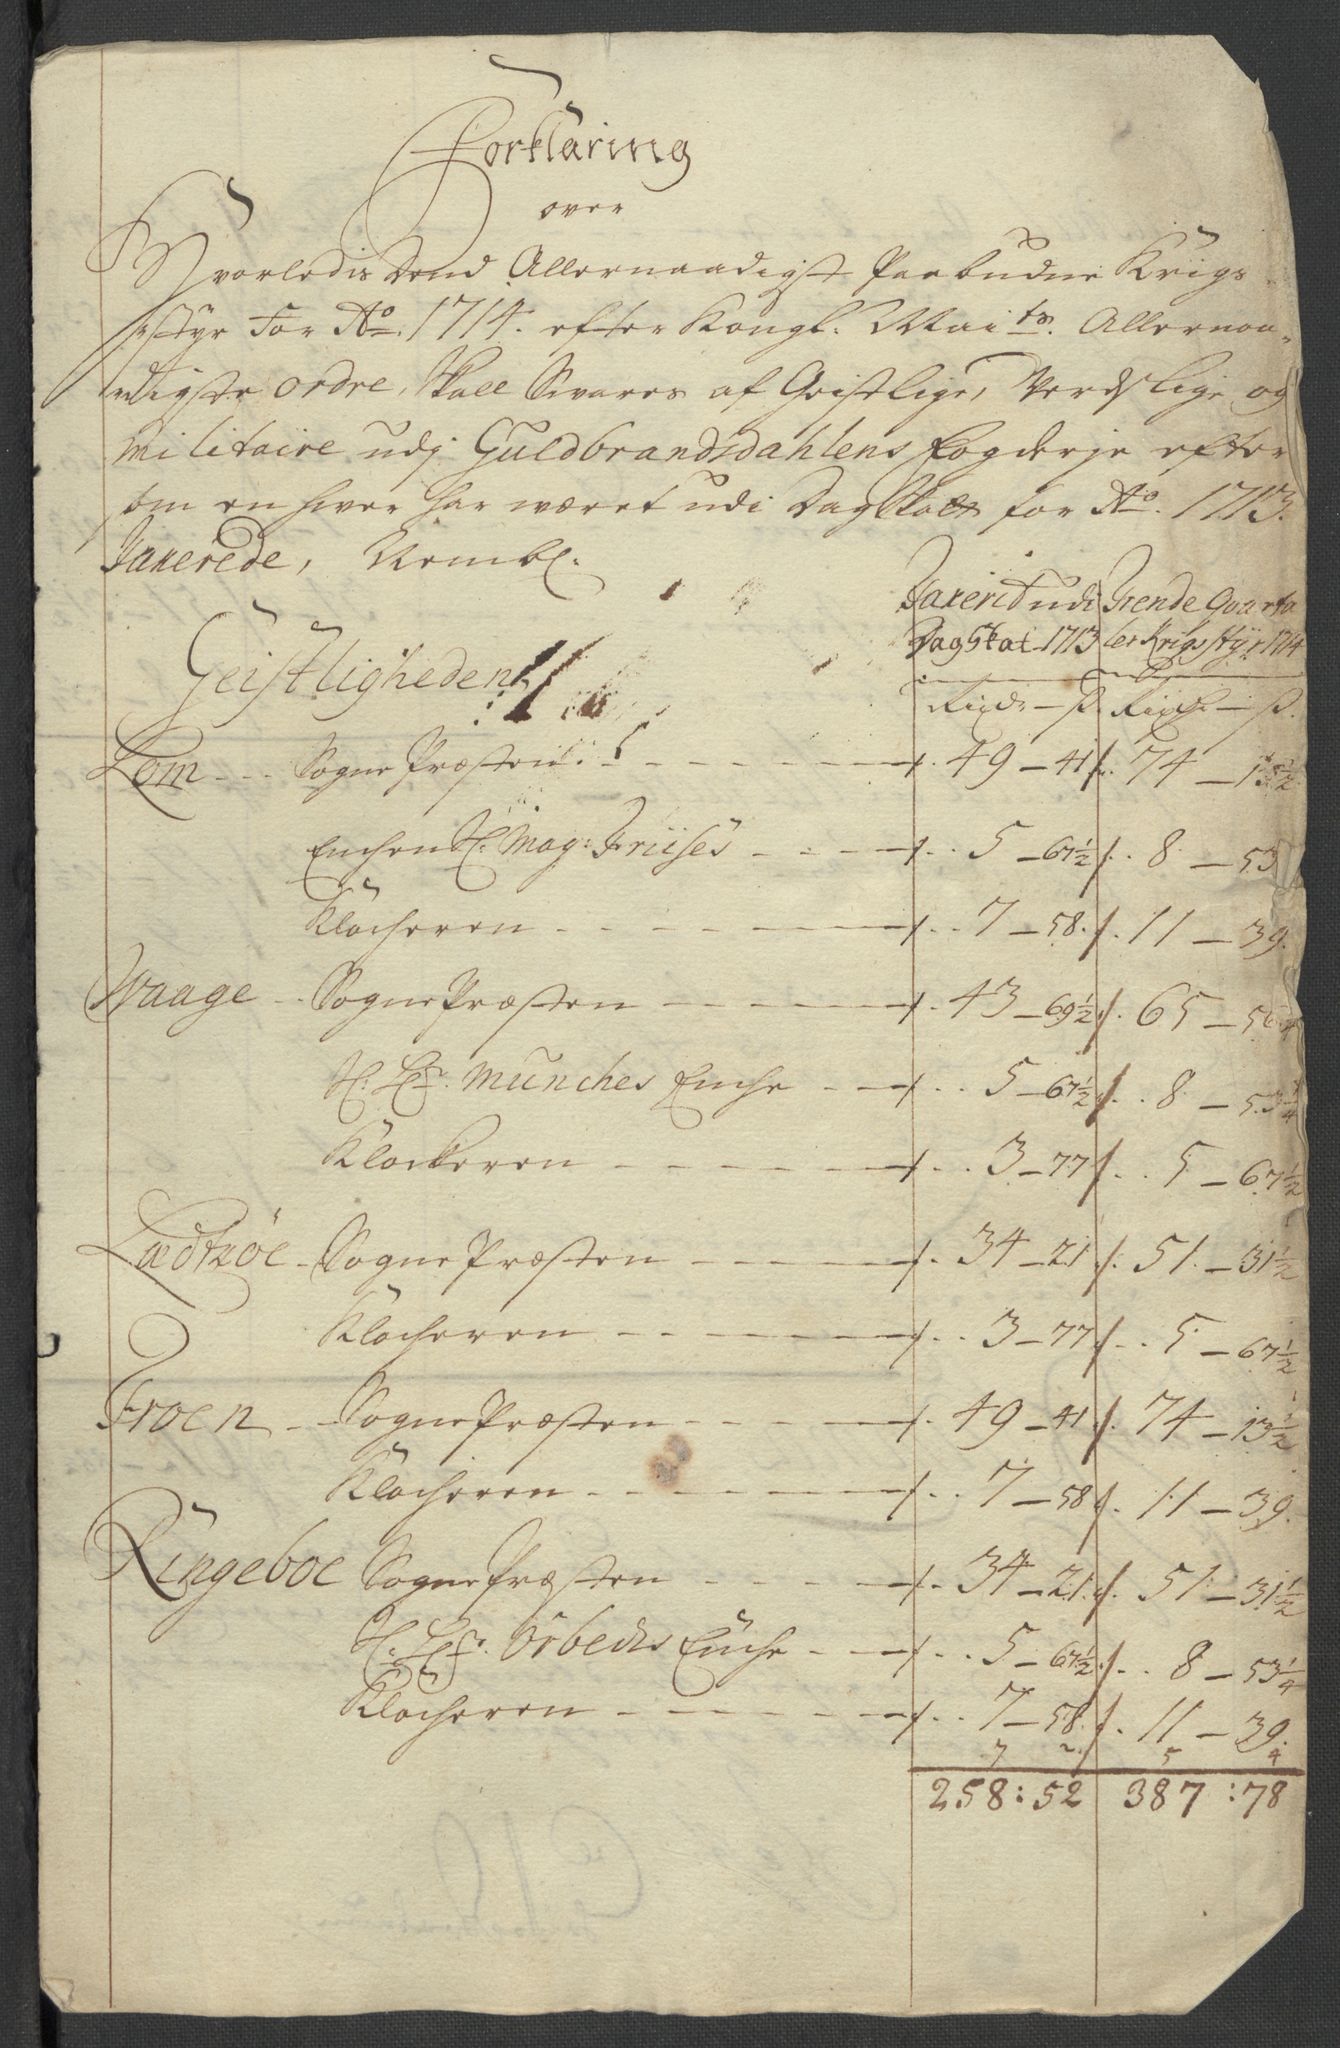 Forklaring
over
Hvorledis dend Allernaadigst Paabudne Krigs
styr For Ao. 1714. efter Kongl. Maits. Allernaa-
digste ordre, Skall Svares af Geistlige, Verdslige og
militaire udj Guldbrandsdahlens Fogderje efter
som en hver har wæret udi DagSkatt for Ao. 1713.
Taxerede, Nembl.
Taxerit udi Trende Qvarta
DagSkat 1713 ler Krigsstÿr 1714
Geistligheden
Rixdr - ß. Rixdr - ß.
Lom - - - Sogne Præsten - - - 49 - 41 74 - 13½
Enchen H. Mag: Friises - - - 5 - 67½ 8 - 53
Klocheren - - - 7 - 58. 11 - 39.
Waage - - Sogne Præsten - - - 43 - 69½ 65 - 56¼
H. Munches Enche - - - 5 - 67½ 8 - 53¼
Klockeren - - - 3 - 77 5 - 67½
Sogne Præsten - - - 34 - 21 51. - 31½
Klocheren - - - 3 - 77 5 - 67½
Froen - Sogne Præsten - - - 49 - 41 74 - 13½
Klocheren - - - 7 - 58 11 - 39.
Ringeboe Sogne Præsten - - - 34 - 21. 51 - 31½
H. Enche - - - 5 - 67½ 8 - 53¼
Klocheren - - - 7 - 58. 11 - 39.
7 2 5 4
258 : 52 387 : 78